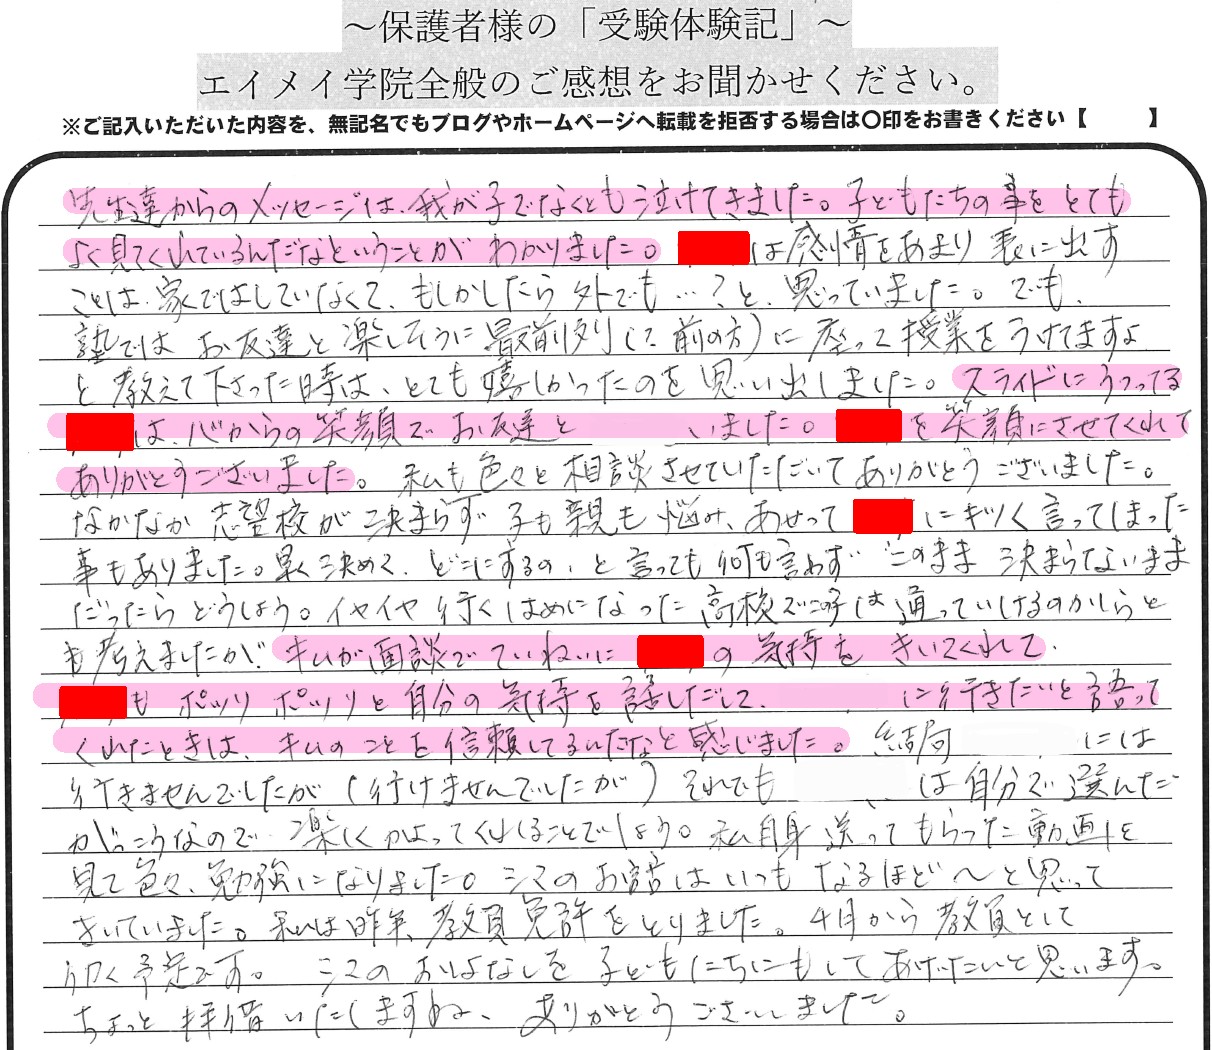 ～保護者様の「受験体験記」～
エイメイ学院全般のご感想をお聞かせください。
※ご記入いただいた内容を、無記名でもブログやホームページへ転載を拒否する場合は〇印をお書きください【　　】
先生達からのメッセージは、我が子でなくとも泣けてきました。子どもたちの事をとても
よく見てくれているんだなということが わかりました。 は感情をあまり表に出す
ことは、家ではしていなくて、もしかしたら外でも…？と、思っていました。でも、
塾では お友達と楽しそうに最前列（に前の方）に座って授業をうけてますよ
と教えて下さった時は、とても嬉しかったのを思い出しました。スライドにうつってる
は、心からの笑顔で お友達と いました。 を笑顔にさせてくれて
ありがとうございました。私も色々と相談させていただいてありがとうございました。
なかなか志望校が決まらず 子も親も悩み、あせって にキツく言ってしまった
事もありました。早く決めて、どこにするの、と言っても何も言わず このまま決まらないまま
だったらどうしよう。イヤイヤ行くはめになった高校でこの子は通っていけるのかしらと
も考えましたが、キムが面談でていねいに の気持を きいてくれて、
も ポツリ ポツリと自分の気持を話しだして、 に行きたいと語って
くれたときは、キムのことを信頼してるんだなと感じました。結局 には
行きませんでしたが（行けませんでしたが）それでも は自分で選んだ
がっこうなので、楽しくかよってくれることでしょう。私自身送ってもらった動画を
見て色々、勉強になりました。シマのお話はいつも なるほど～と思って
きいていました。私は昨年、教員免許をとりました。4月から教員として
うごく予定です。 シマの おはなしを 子どもたちにもしてあげたいと思います。
ちょっと拝借いたしますね、ありがとうございました。